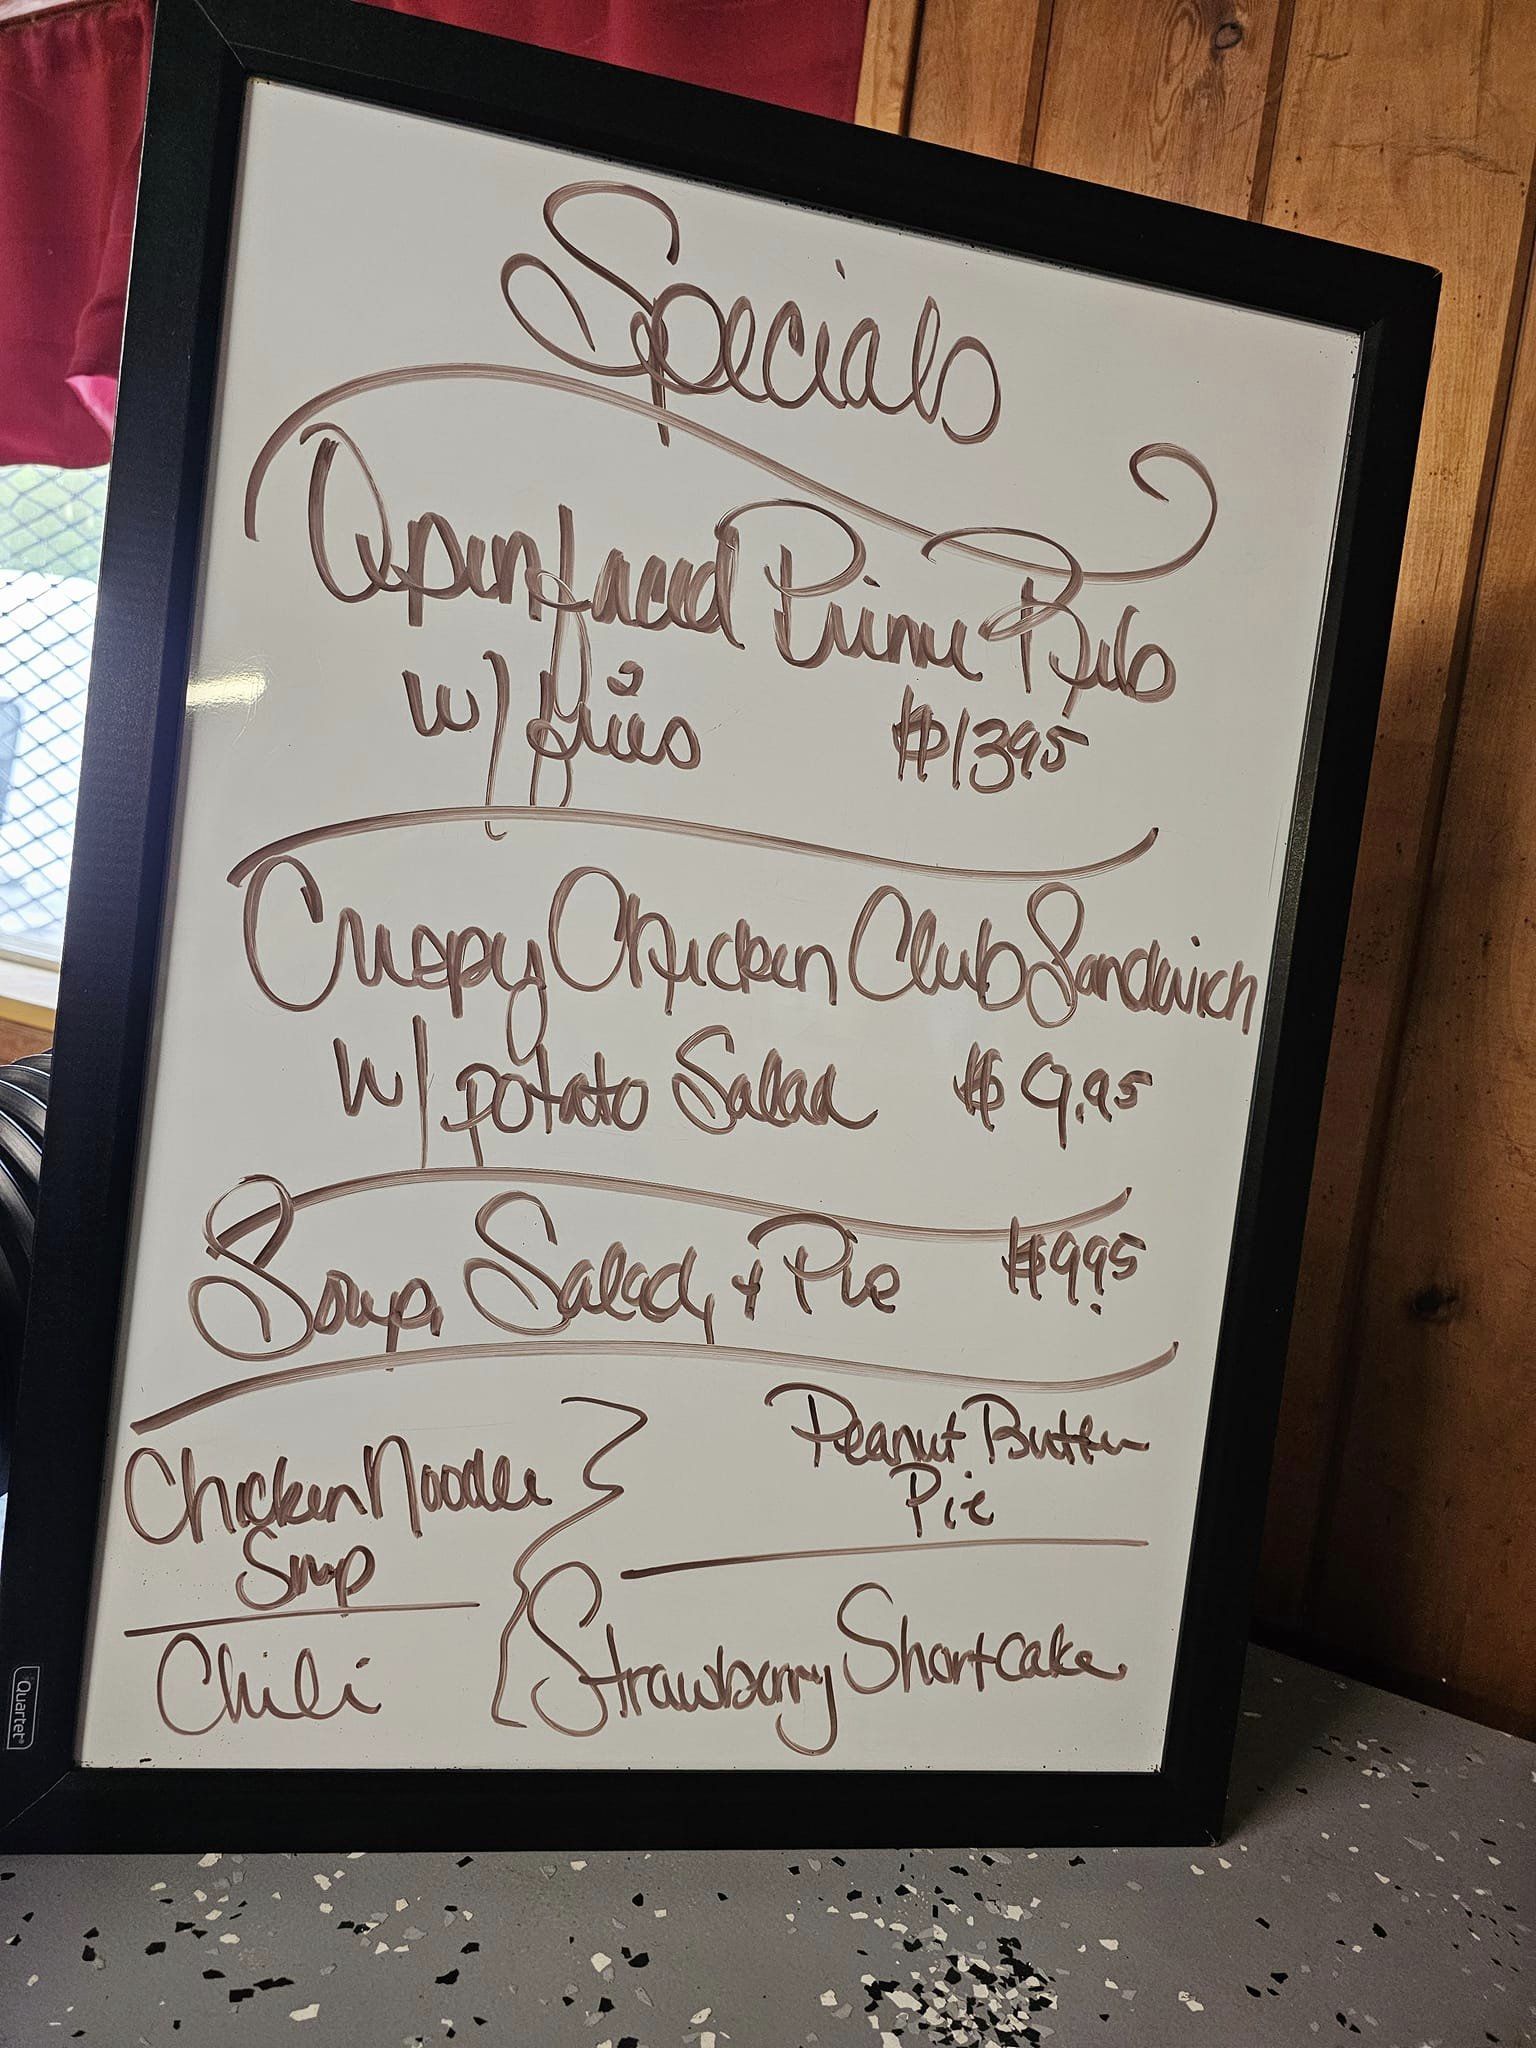 Specials
Openfaced Prime Rib
w/ fries $13.95
Crispy Chicken Club Sandwich
w/ potato Salad $9.95
Soup, Salad, + Pie $9.95
Chicken Noodle
Soup
Chili
Peanut Butter
Pie
Strawberry Shortcake
Quartet®